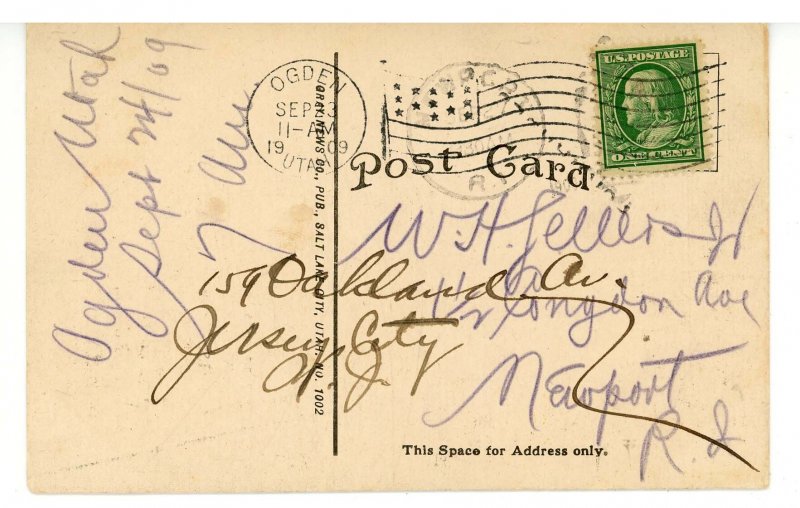 Ogden Utah
Sept 24/09
7 am
OGDEN
SEP 3
11-AM
19 09
UTAH
GRAY NEWS CO., PUB., SALT LAKE CITY, UTAH. NO. 1002
U.S. POSTAGE
ONE CENT
Post Card
R.I.
W.H. Sellers Jr
159 Oakland Av.
Congdon Ave
Jersey City
N.J.
Newport
R.I.
This Space for Address only.